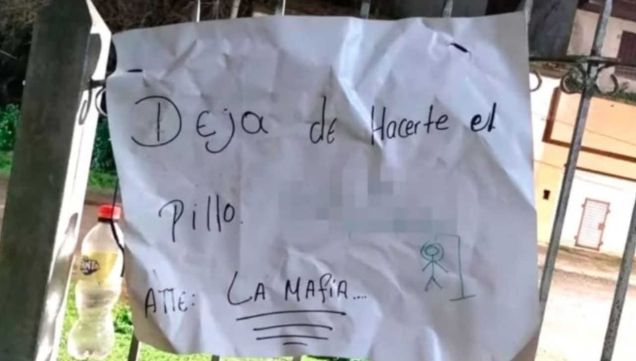 Deja de Hacerte el
Pillo.
ATTE: LA MAFIA....